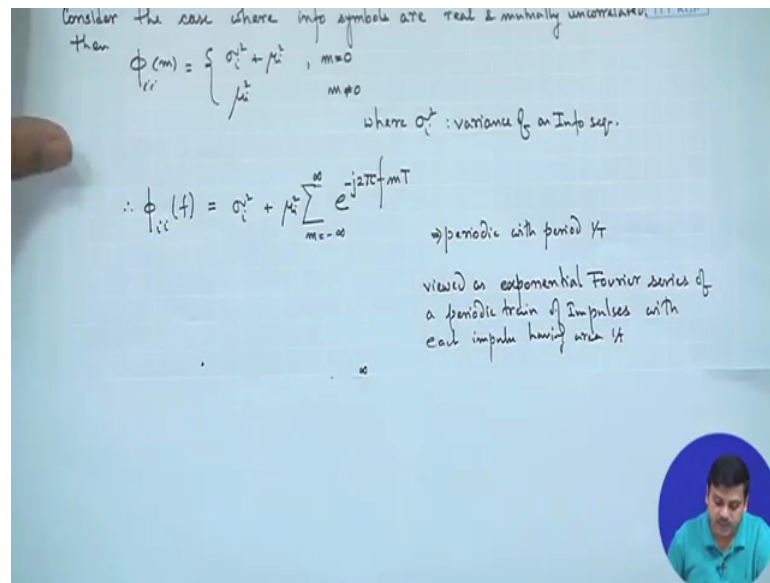 Consider the case where info symbols are real & mutually uncorrelated,
then
ϕ_ii(m) = { σ_i² + μ_i² , m=0
μ_i² m≠0
where σ_i² : variance of an Info seq.
∴ ϕ_ii(f) = σ_i² + μ_i² ∑_{m=-∞}^{∞} e^{-j2πfmT}
⇒ periodic with period 1/T
viewed as exponential Fourier series of
a periodic train of Impulses with
each impulse having area 1/T
∞